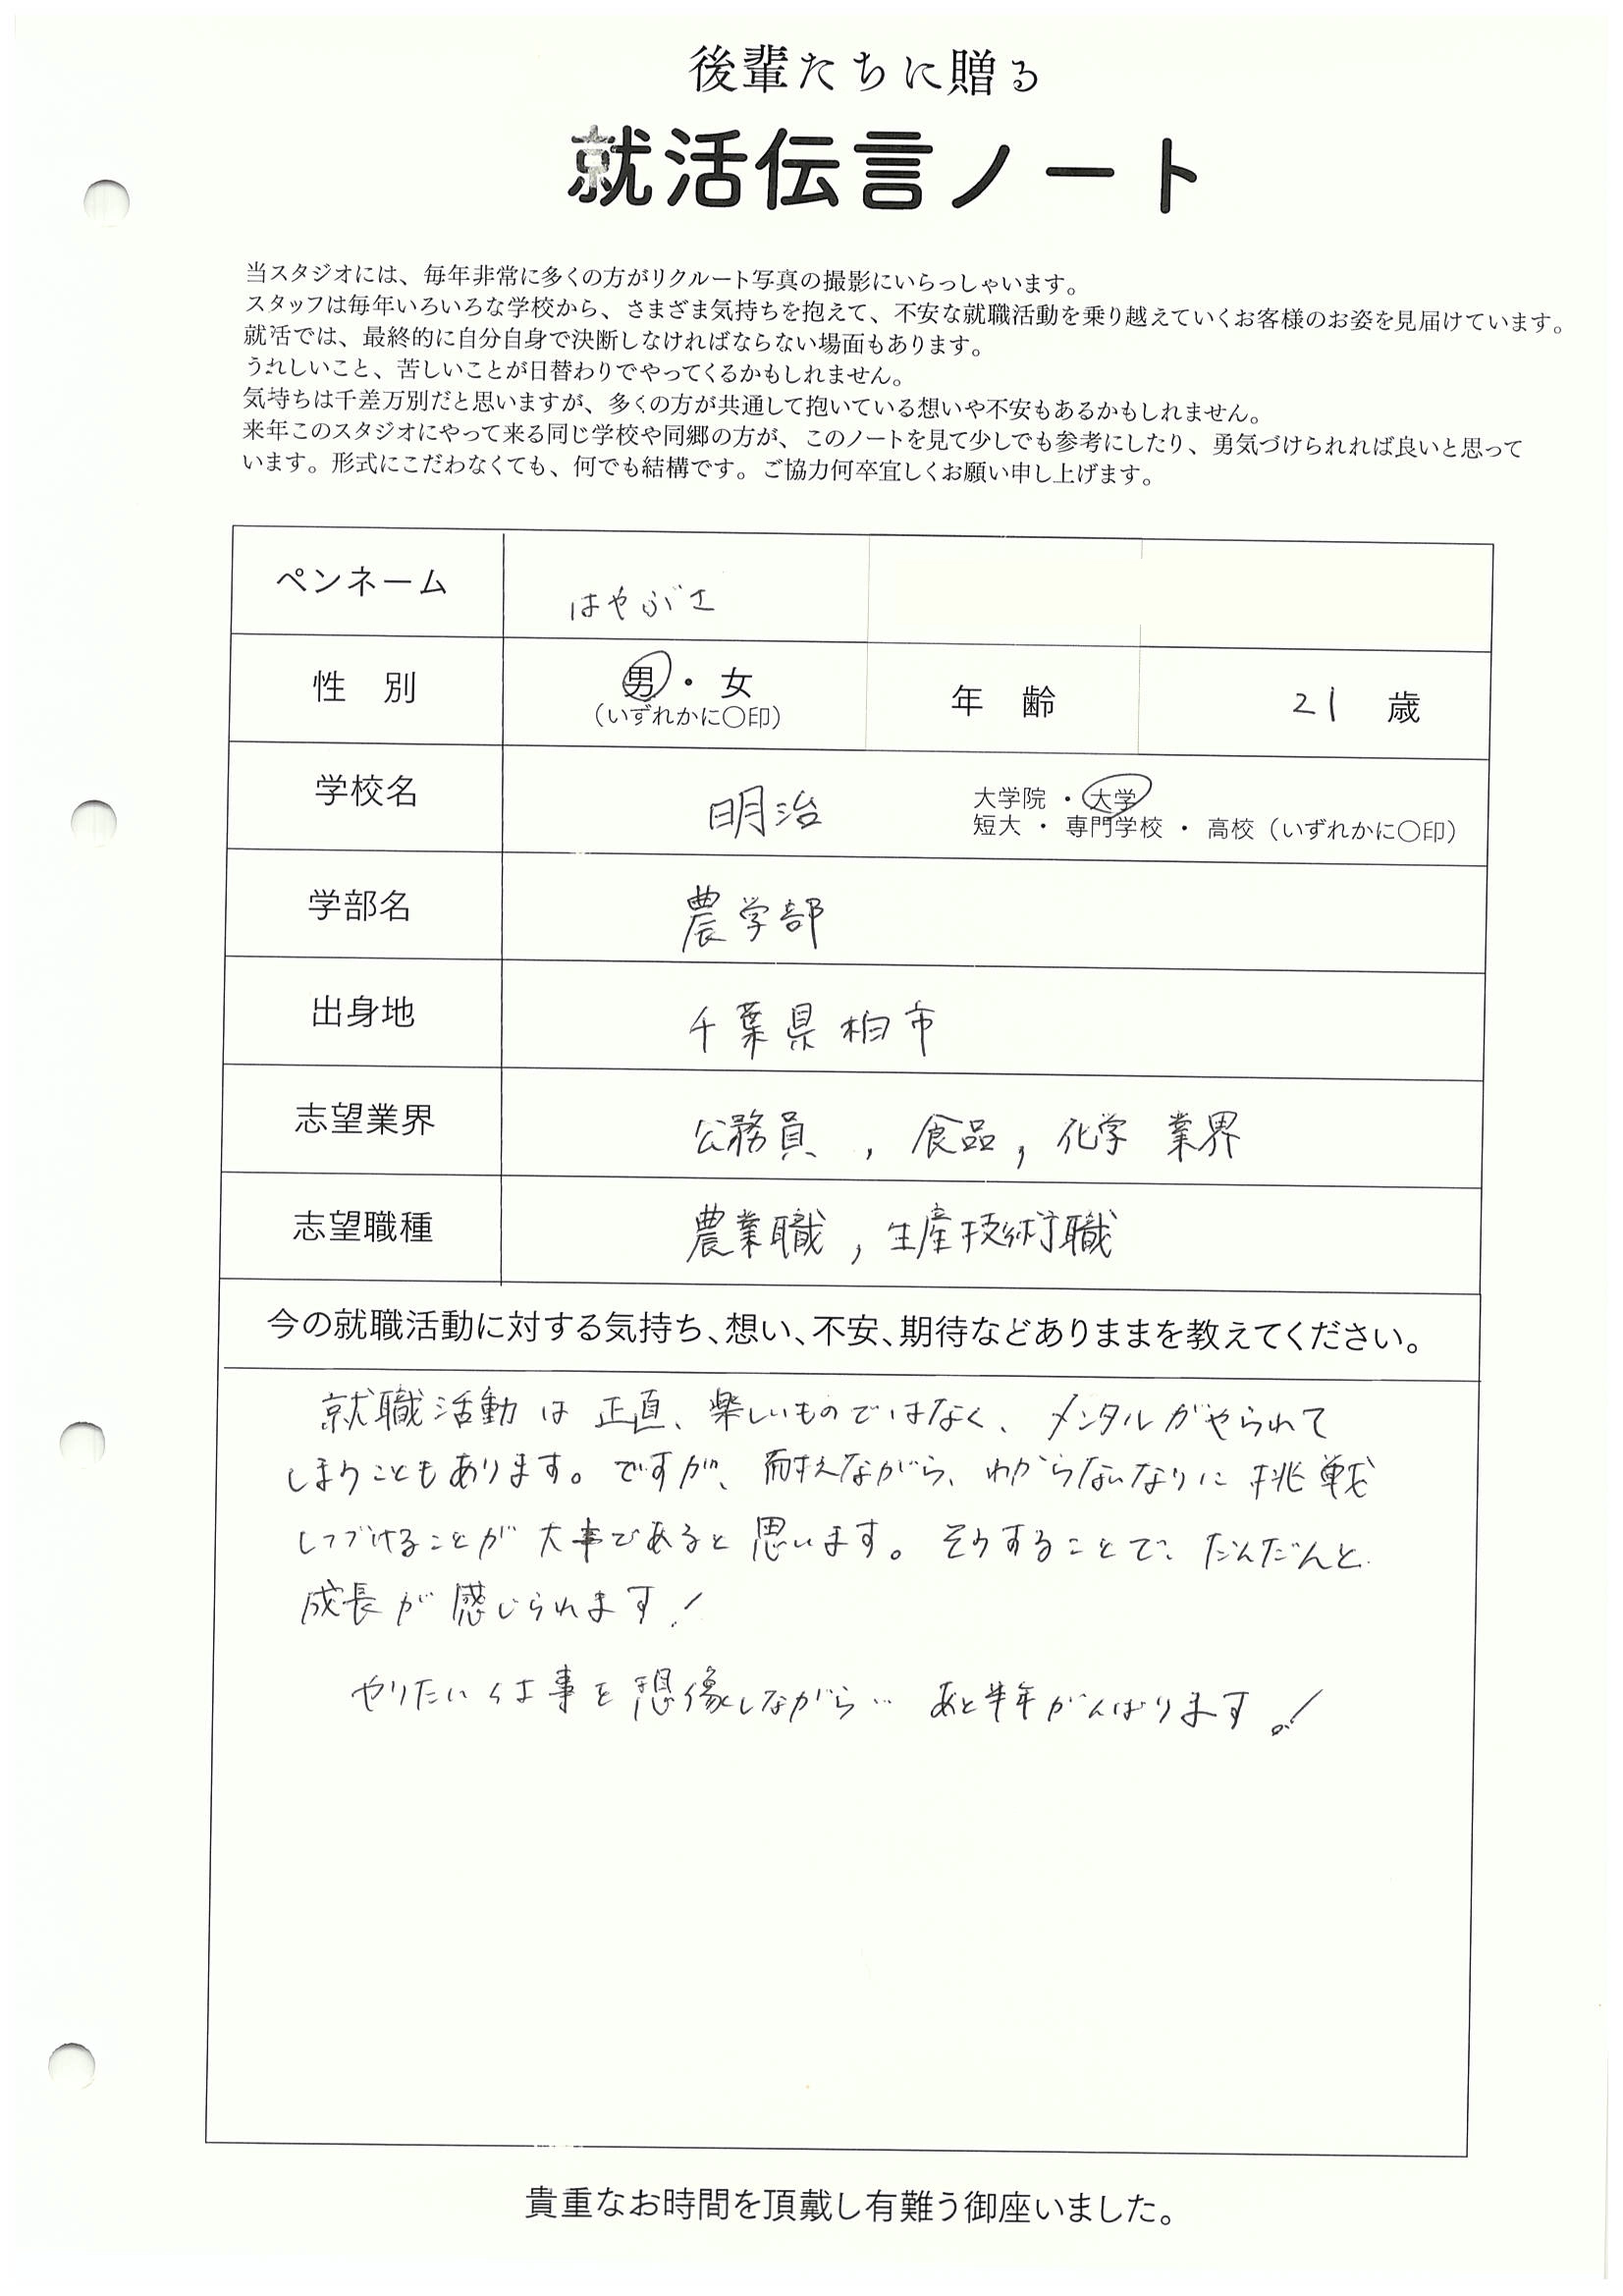 後輩たちに贈る
就活伝言ノート
当スタジオには、毎年非常に多くの方がリクルート写真の撮影にいらっしゃいます。
スタッフは毎年いろいろな学校から、さまざま気持ちを抱えて、不安な就職活動を乗り越えていくお客様のお姿を見届けています。
就活では、最終的に自分自身で決断しなければならない場面もあります。
うれしいこと、苦しいことが日替わりでやってくるかもしれません。
気持ちは千差万別だと思いますが、多くの方が共通して抱いている想いや不安もあるかもしれません。
来年このスタジオにやって来る同じ学校や同郷の方が、このノートを見て少しでも参考にしたり、勇気づけられれば良いと思って
います。形式にこだわなくても、何でも結構です。ご協力何卒宜しくお願い申し上げます。
ペンネーム はやぶさ
性 別 男・女 年 齢 21 歳
(いずれかに〇印)
学校名 明治 大学院 ・ 大学
短大 ・ 専門学校 ・ 高校(いずれかに〇印)
学部名 農学部
出身地 千葉県柏市
志望業界 公務員, 食品, 化学 業界
志望職種 農業職, 生産技術職
今の就職活動に対する気持ち、想い、不安、期待などありままを教えてください。
就職活動は正直、楽しいものではなく、メンタルがやられて
しまうこともあります。ですが、耐えながら、わからないなりに挑戦
しつづけることが大事であると思います。そうすることで、だんだんと
成長が感じられます!
やりたい仕事を想像しながら… あと半年がんばります!
貴重なお時間を頂戴し有難う御座いました。